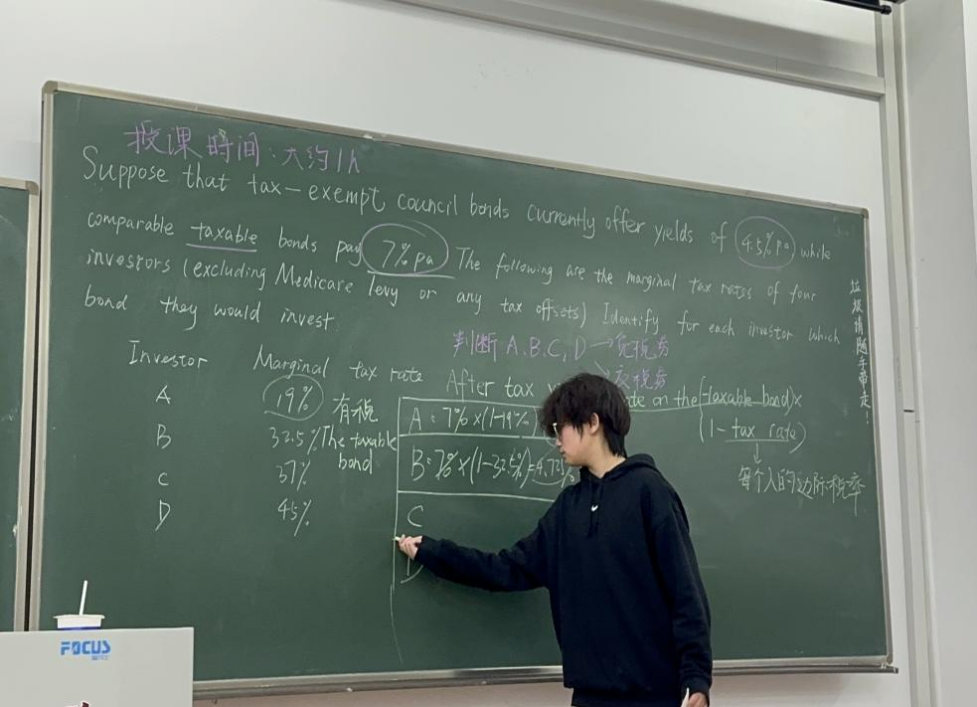 授课时间:大约1h
Suppose that tax-exempt council bonds currently offer yields of 4.5% pa while
comparable taxable bonds pay 7% pa The following are the marginal tax rates of four
investors (excluding Medicare levy or any tax offsets) Identify for each investor which
bond they would invest
判断A、B、C、D → 免税券
税券
Investor Marginal tax rate
A 19% 有税
B 32.5% The taxable
bond
C 37%
D 45%
After tax on the taxable bond)×
(1-tax rate)
每个人的边际税率
A=7%×(1-19%)
B=7%×(1-32.5%)=4.72
C
D
垃圾请随手带走
FOCUS